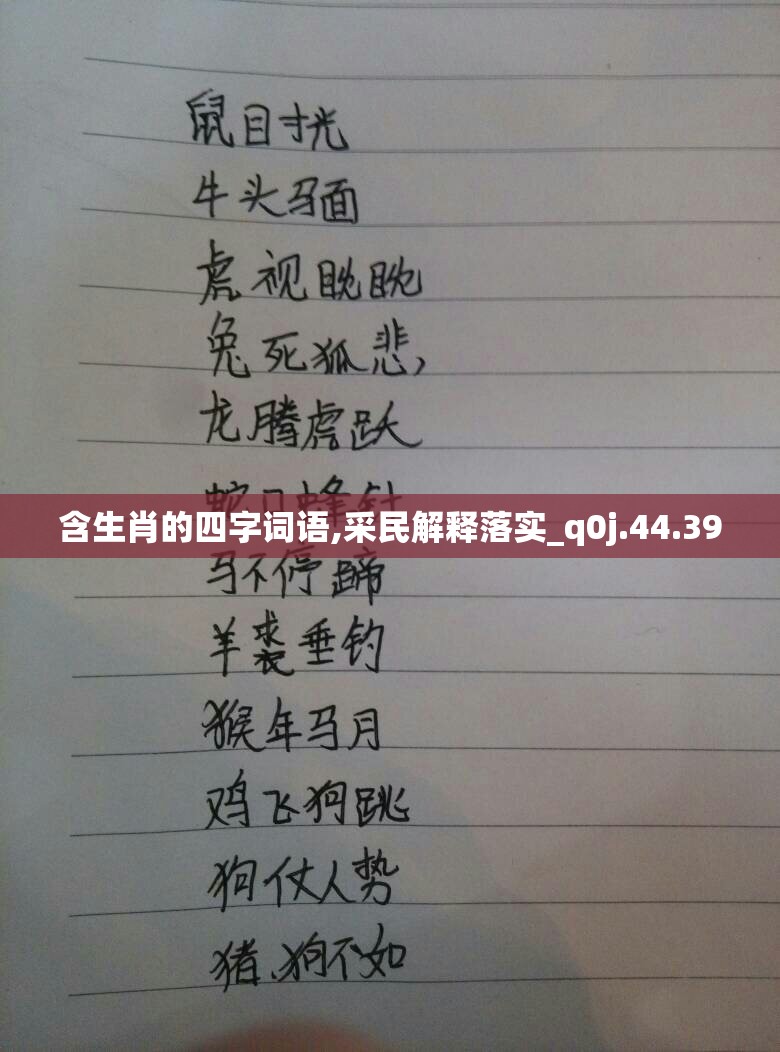 鼠目寸光
牛头马面
虎视眈眈
兔死狐悲,
龙腾虎跃
含生肖的四字词语,采民解释落实_q0j.44.39
马不停蹄
羊裘垂钓
猴年马月
鸡飞狗跳
狗仗人势
猪、狗不如